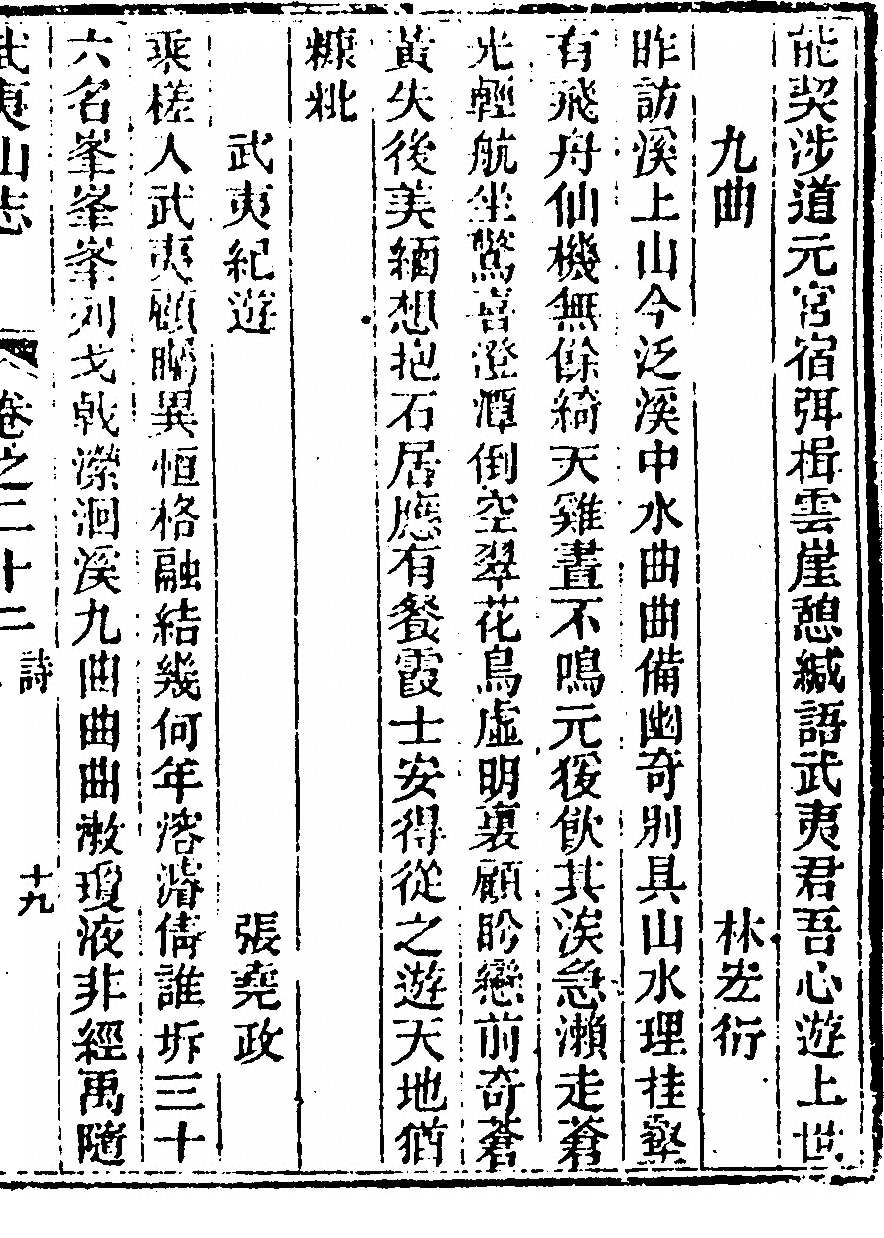 能契涉道元宮宿弭楫雲崖憩緘語武夷君吾心遊上世
九曲 林岦衍
昨訪溪上山今泛溪中水曲曲備幽奇別具山水理挂壑
有飛舟仙機無餘綺天雞晝不鳴元猨飲其涘急瀨走蒼
光輕航坐驚喜澄潭倒空翠花鳥虛明裏顧盻戀前奇蒼
黃失後美緬想抱石居應有餐霞士安得從之遊天地猶
糠粃
武夷紀遊 張堯政
乘槎人武夷顧眄異恒格融結幾何年溶濬倩誰坼三十
六名峯峯峯列戈戟瀠洄溪九曲曲曲漱瓊液非經禹隨
武夷山志 卷之二十二 詩 十九